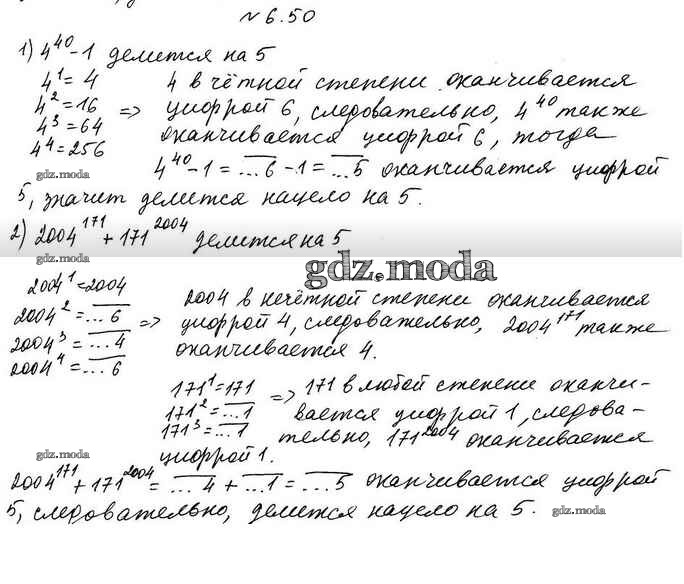 № 6.50
1) 4^40 - 1 делится на 5
4^1 = 4 4 в чётной степени оканчивается
4^2 = 16 => цифрой 6, следовательно, 4^40 также
4^3 = 64 оканчивается цифрой 6, тогда
4^4 = 256
4^40 - 1 = \overline{...6} - 1 = \overline{...5} оканчивается цифрой
gdz.moda
5, значит делится нацело на 5.
2) 2004^171 + 171^2004 делится на 5
gdz.moda
gdz.moda
2004^1 = 2004
2004^2 = \overline{...6} => 2004 в нечётной степени оканчивается
2004^3 = \overline{...4} цифрой 4, следовательно, 2004^171 также
2004^4 = \overline{...6} оканчивается 4.
171^1 = 171 => 171 в любой степени оканчи-
171^2 = \overline{...1} вается цифрой 1, следова-
171^3 = \overline{...1} тельно, 171^2004 оканчивается
gdz.moda
цифрой 1.
2004^171 + 171^2004 = \overline{...4} + \overline{...1} = \overline{...5} оканчивается цифрой
5, следовательно, делится нацело на 5.
gdz.moda